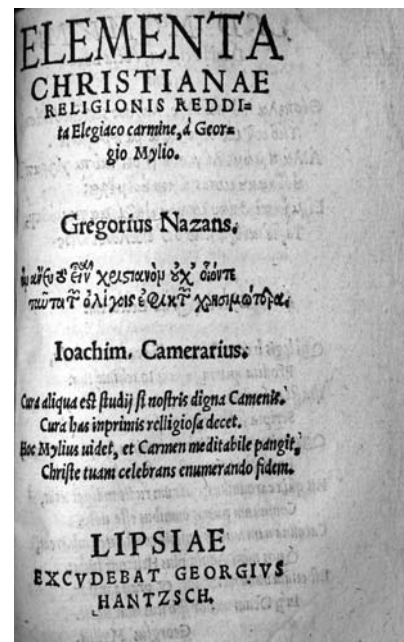 ELEMENTA
CHRISTIANAE
RELIGIONIS REDDI=
ta Elegiaco carmine, à Geor=
gio Mylio.
Gregorius Nazans.
χριστιανὸμ οὐχ' οἷόντε
ταῦτα τ͂ ὀλίγοις ἐφικτ͂ χρησιμώτερα.
Ioachim. Camerarius.
Cura aliqua est studij si nostris digna Camenis.
Cura has inprimis relligiosa decet.
Hoc Mylius uidet, et Carmen meditabile pangit,
Christe tuam celebrans enumerando fidem.
LIPSIAE
EXCVDEBAT GEORGIVS
HANTZSCH.